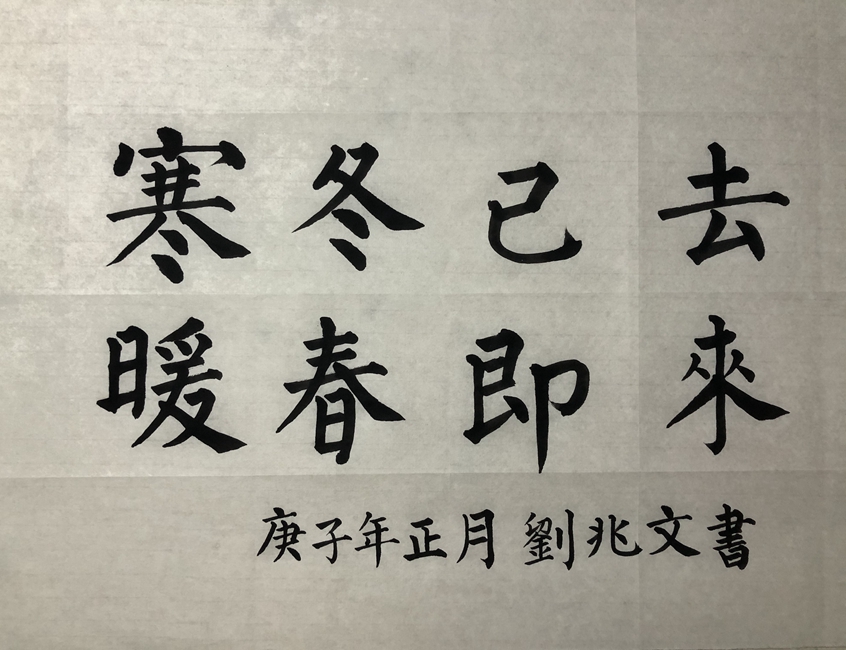 寒冬已去
暖春即來
庚子年正月 劉兆文書